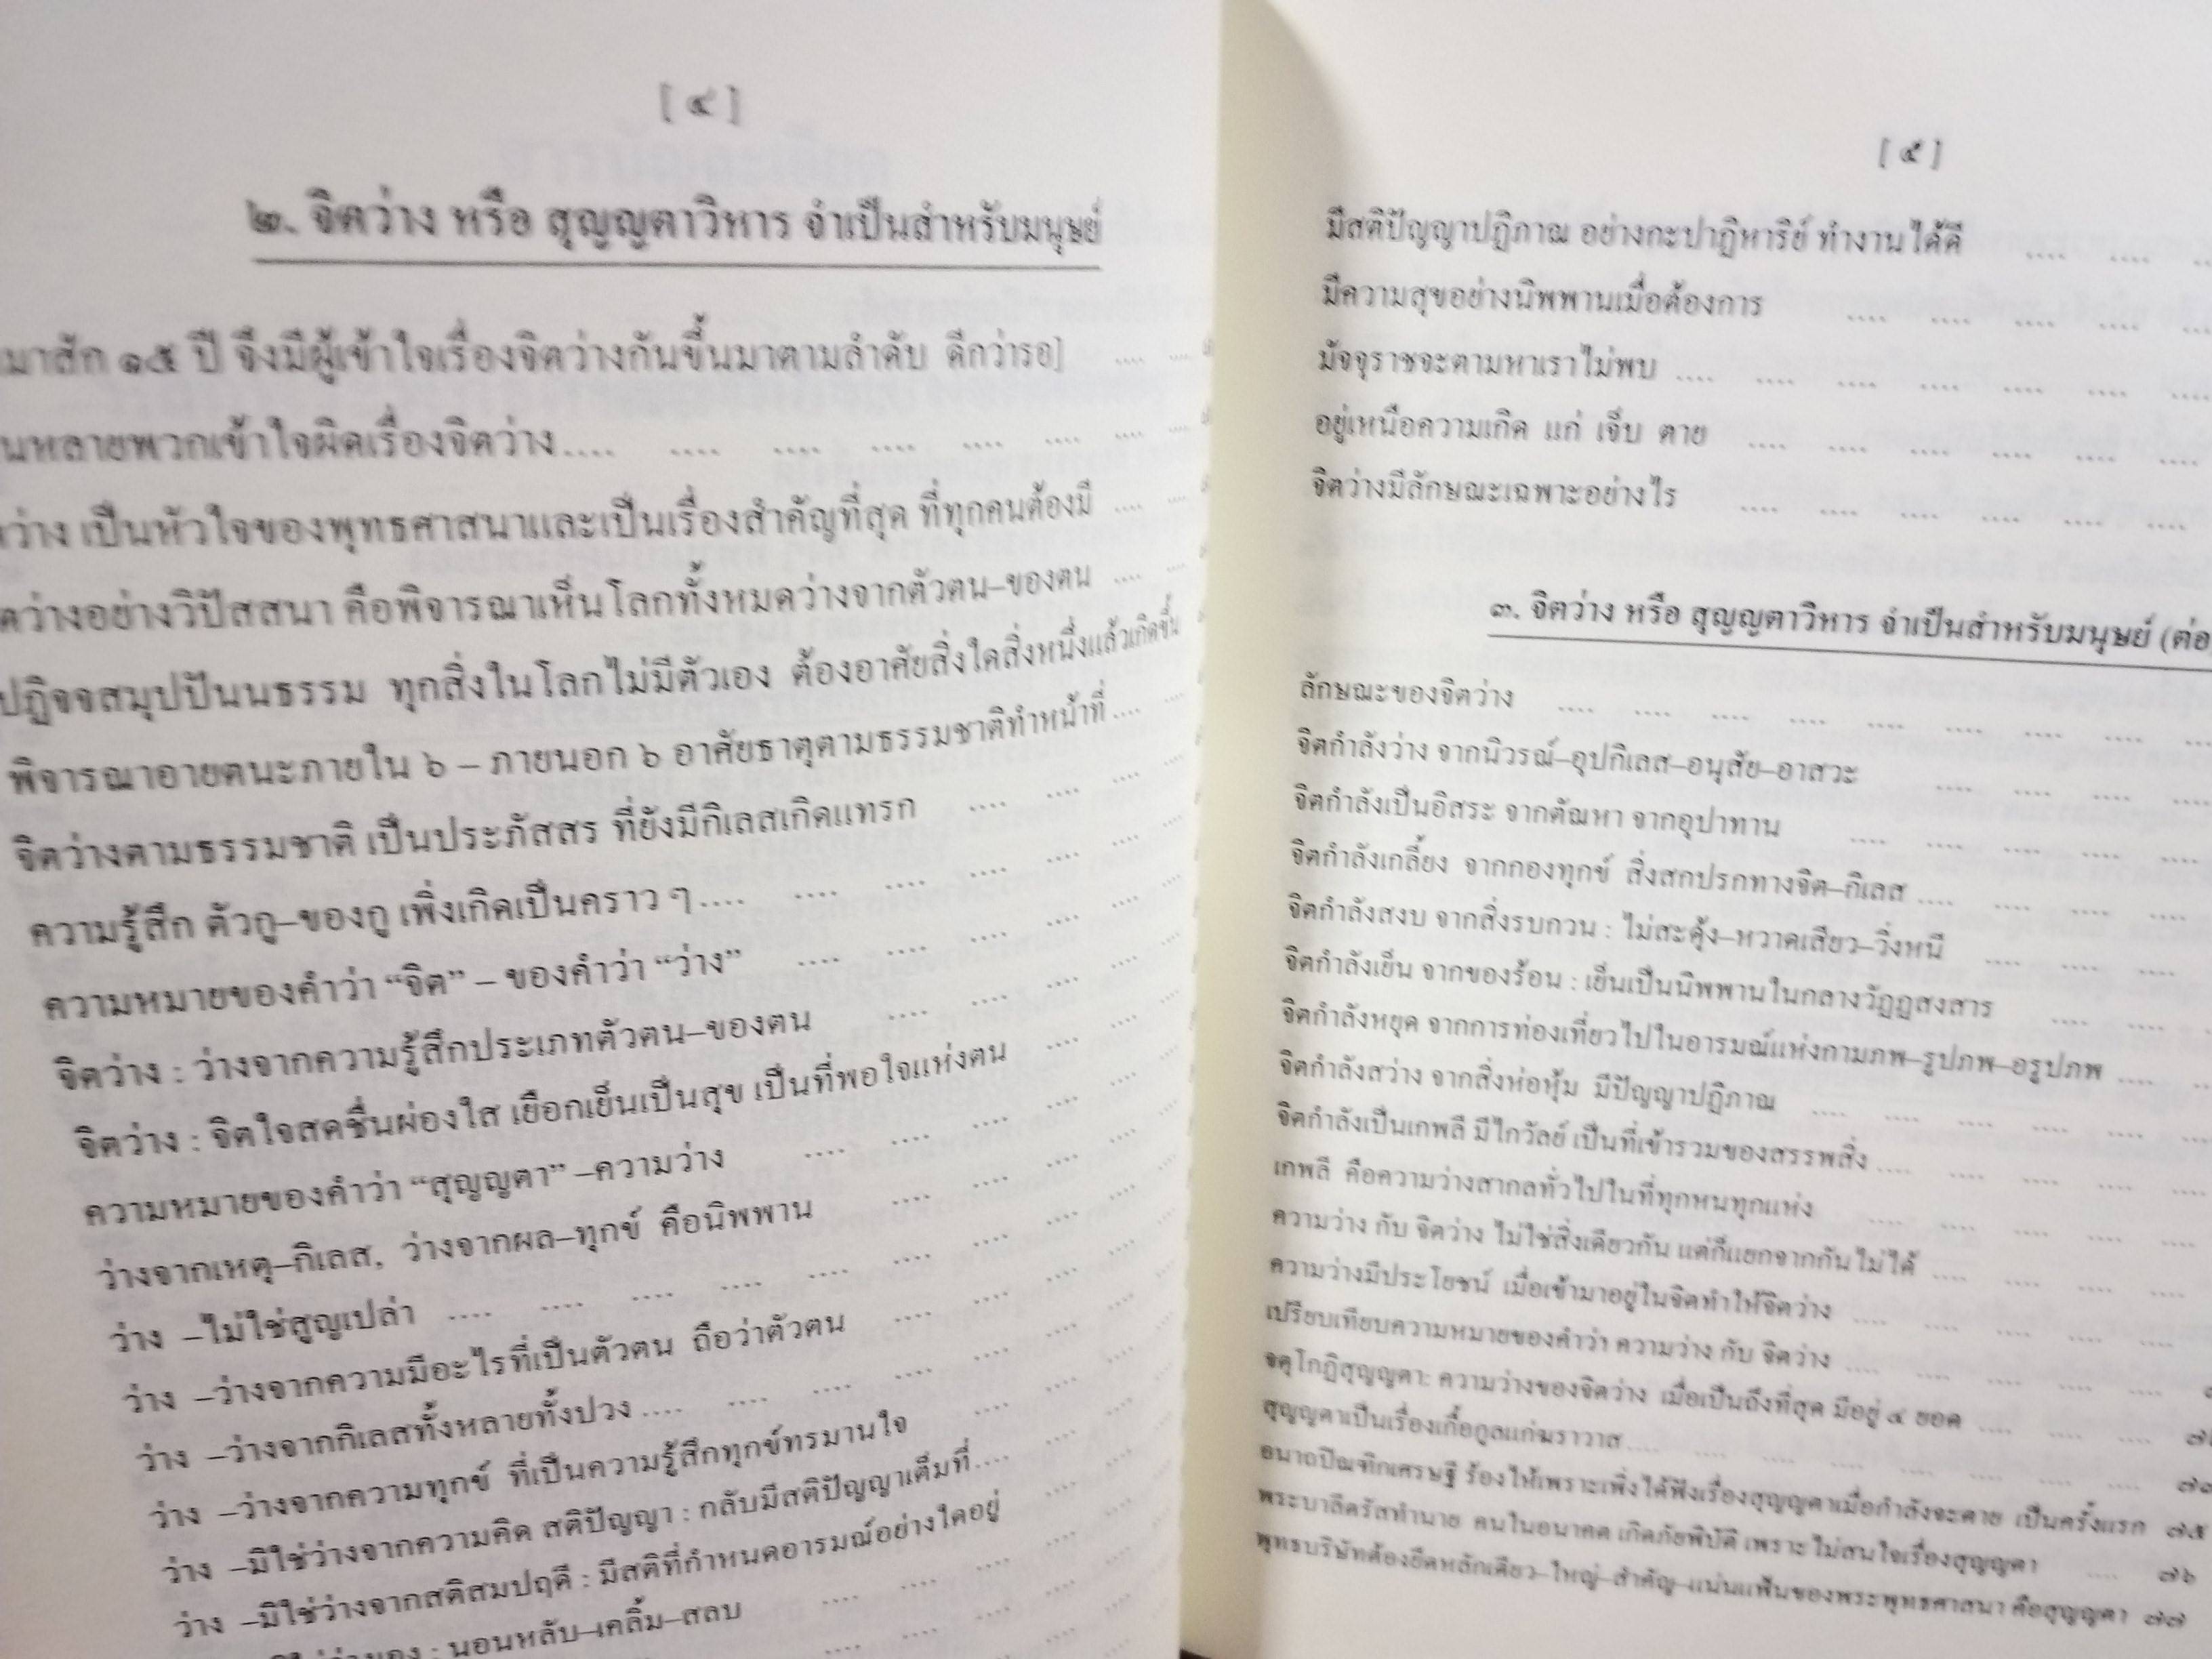 [ ๔ ]
๒. จิตว่าง หรือ สุญญตาวิหาร จำเป็นสำหรับมนุษย์
มาสัก ๑๕ ปี จึงมีผู้เข้าใจเรื่องจิตว่างกันขึ้นมาตามลำดับ ดีกว่ารอ] .... ....
หลายพวกเข้าใจผิดเรื่องจิตว่าง.... .... .... .... .... .... ....
ว่าง เป็นหัวใจของพุทธศาสนาและเป็นเรื่องสำคัญที่สุด ที่ทุกคนต้องมี .... ....
ว่างอย่างวิปัสสนา คือพิจารณาเห็นโลกทั้งหมดว่างจากตัวตน–ของตน .... ....
ปฏิจจสมุปปันนธรรม ทุกสิ่งในโลกไม่มีตัวเอง ต้องอาศัยสิ่งใดสิ่งหนึ่งแล้วเกิดขึ้น
พิจารณาอายตนะภายใน ๖ – ภายนอก ๖ อาศัยธาตุตามธรรมชาติทำหน้าที่.... ....
จิตว่างตามธรรมชาติ เป็นประภัสสร ที่ยังมีกิเลสเกิดแทรก .... .... .... ....
ความรู้สึก ตัวกู–ของกู เพิ่งเกิดเป็นคราว ๆ.... .... .... .... .... .... ....
ความหมายของคำว่า “จิต” – ของคำว่า “ว่าง” .... .... .... .... ....
จิตว่าง : ว่างจากความรู้สึกประเภทตัวตน–ของตน .... .... .... ....
จิตว่าง : จิตใจสดชื่นผ่องใส เยือกเย็นเป็นสุข เป็นที่พอใจแห่งตน .... ....
ความหมายของคำว่า “สุญญตา” –ความว่าง .... .... .... .... ....
ว่างจากเหตุ–กิเลส, ว่างจากผล–ทุกข์ คือนิพพาน .... .... .... ....
ว่าง –ไม่ใช่สูญเปล่า .... .... .... .... .... .... .... ....
ว่าง –ว่างจากความมีอะไรที่เป็นตัวตน ถือว่าตัวตน .... .... ....
ว่าง –ว่างจากกิเลสทั้งหลายทั้งปวง .... .... .... .... .... ....
ว่าง –ว่างจากความทุกข์ ที่เป็นความรู้สึกทุกข์ทรมานใจ .... .... ....
ว่าง –มิใช่ว่างจากความคิด สติปัญญา : กลับมีสติปัญญาเต็มที่.... .... ....
ว่าง –มิใช่ว่างจากสติสมปฤดี : มีสติที่กำหนดอารมณ์อย่างใดอยู่ .... ....
: นอนหลับ–เคลิ้ม–สลบ .... .... .... ....
[ ๕ ]
มีสติปัญญาปฏิภาณ อย่างกะปาฏิหาริย์ ทำงานได้ดี .... ....
มีความสุขอย่างนิพพานเมื่อต้องการ .... .... .... ....
มัจจุราชจะตามหาเราไม่พบ .... .... .... .... .... .... ....
อยู่เหนือความเกิด แก่ เจ็บ ตาย .... .... .... .... .... ....
จิตว่างมีลักษณะเฉพาะอย่างไร .... .... .... .... .... ....
๓. จิตว่าง หรือ สุญญตาวิหาร จำเป็นสำหรับมนุษย์ (ต่อ)
ลักษณะของจิตว่าง .... .... .... .... .... .... .... ....
จิตกำลังว่าง จากนิวรณ์–อุปกิเลส–อนุสัย–อาสวะ .... .... .... ....
จิตกำลังเป็นอิสระ จากตัณหา จากอุปาทาน .... .... .... .... ....
จิตกำลังเกลี้ยง จากกองทุกข์ สิ่งสกปรกทางจิต–กิเลส .... .... .... ....
จิตกำลังสงบ จากสิ่งรบกวน : ไม่สะดุ้ง–หวาดเสียว–วิ่งหนี .... .... ....
จิตกำลังเย็น จากของร้อน : เย็นเป็นนิพพานในกลางวัฏฏสงสาร .... ....
จิตกำลังหยุด จากการท่องเที่ยวไปในอารมณ์แห่งกามภพ–รูปภพ–อรูปภพ .... ....
จิตกำลังสว่าง จากสิ่งห่อหุ้ม มีปัญญาปฏิภาณ .... .... .... .... ....
จิตกำลังเป็นเกพลี มีไกวัลย์ เป็นที่เข้ารวมของสรรพสิ่ง .... .... .... ....
เกพลี คือความว่างสากลทั่วไปในที่ทุกหนทุกแห่ง .... .... .... .... ....
ความว่าง กับ จิตว่าง ไม่ใช่สิ่งเดียวกัน แต่ก็แยกจากกันไม่ได้ .... .... .... ....
ความว่างมีประโยชน์ เมื่อเข้ามาอยู่ในจิตทำให้จิตว่าง .... .... .... ....
เปรียบเทียบความหมายของคำว่า ความว่าง กับ จิตว่าง .... .... .... .... ....
จตุโกฏิสุญญตา: ความว่างของจิตว่าง เมื่อเป็นถึงที่สุด มีอยู่ ๔ ยอด .... .... ....
สุญญตาเป็นเรื่องเกื้อกูลแก่ฆราวาส .... .... .... .... .... .... ....
อนาถปิณฑิกเศรษฐี ร้องไห้เพราะเพิ่งได้ฟังเรื่องสุญญตาเมื่อกำลังจะตาย เป็นครั้งแรก ๗๕
พระบาลีตรัสทำนาย คนในอนาคต เกิดภัยพิบัติ เพราะไม่สนใจเรื่องสุญญตา .... ๗๖
พุทธบริษัทต้องยึดหลักเดียว–ใหญ่–สำคัญ–แน่นแฟ้นของพระพุทธศาสนา คือสุญญตา ๗๗